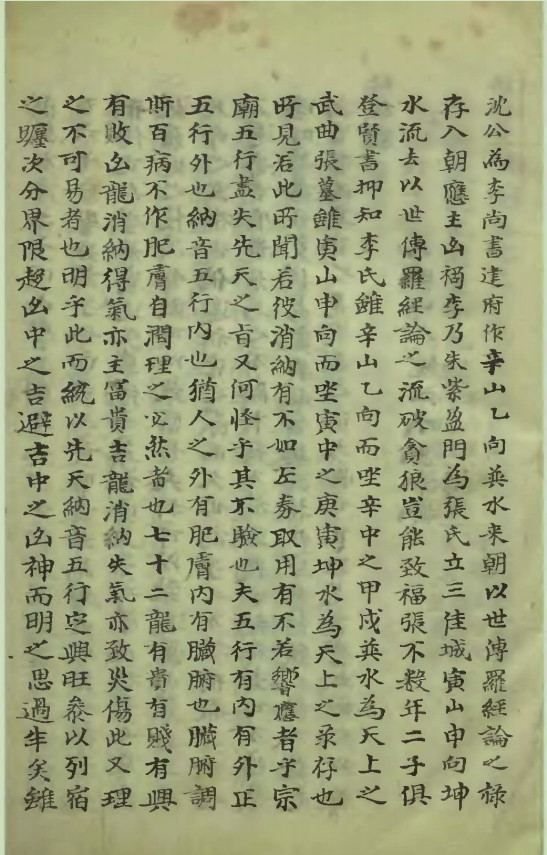 沈公為李尚書建府作辛山乙向巽水来朝以世傳羅經論之祿
存入朝應主凶禍李乃朱紫盈門為張氏立三佳城寅山申向坤
水流去以世傳羅經論之流破貪狼豈能致福張不数年二子俱
登賢書抑知李氏雖辛山乙向而坐辛中之甲戌巽水為天上之
武曲張墓雖寅山申向而坐寅中之庚寅坤水為天上之祿存也
所見若此所聞若彼消納有不如左券取用有不若響應者乎宗
廟五行盡失先天之旨又何怪乎其不驗也夫五行有内有外正
五行外也納音五行内也猶人之外有肥膚内有臟腑也臟腑調
斯百病不作肥膚自潤理之必然者也七十二龍有貴有賤有興
有敗凶龍消納得氣亦主冨貴吉龍消納失氣亦致災傷此又理
之不可易者也明乎此而統以先天納音五行定興旺叅以列宿
之躔次分界限趨凶中之吉避吉中之凶神而明之思過半矣雖